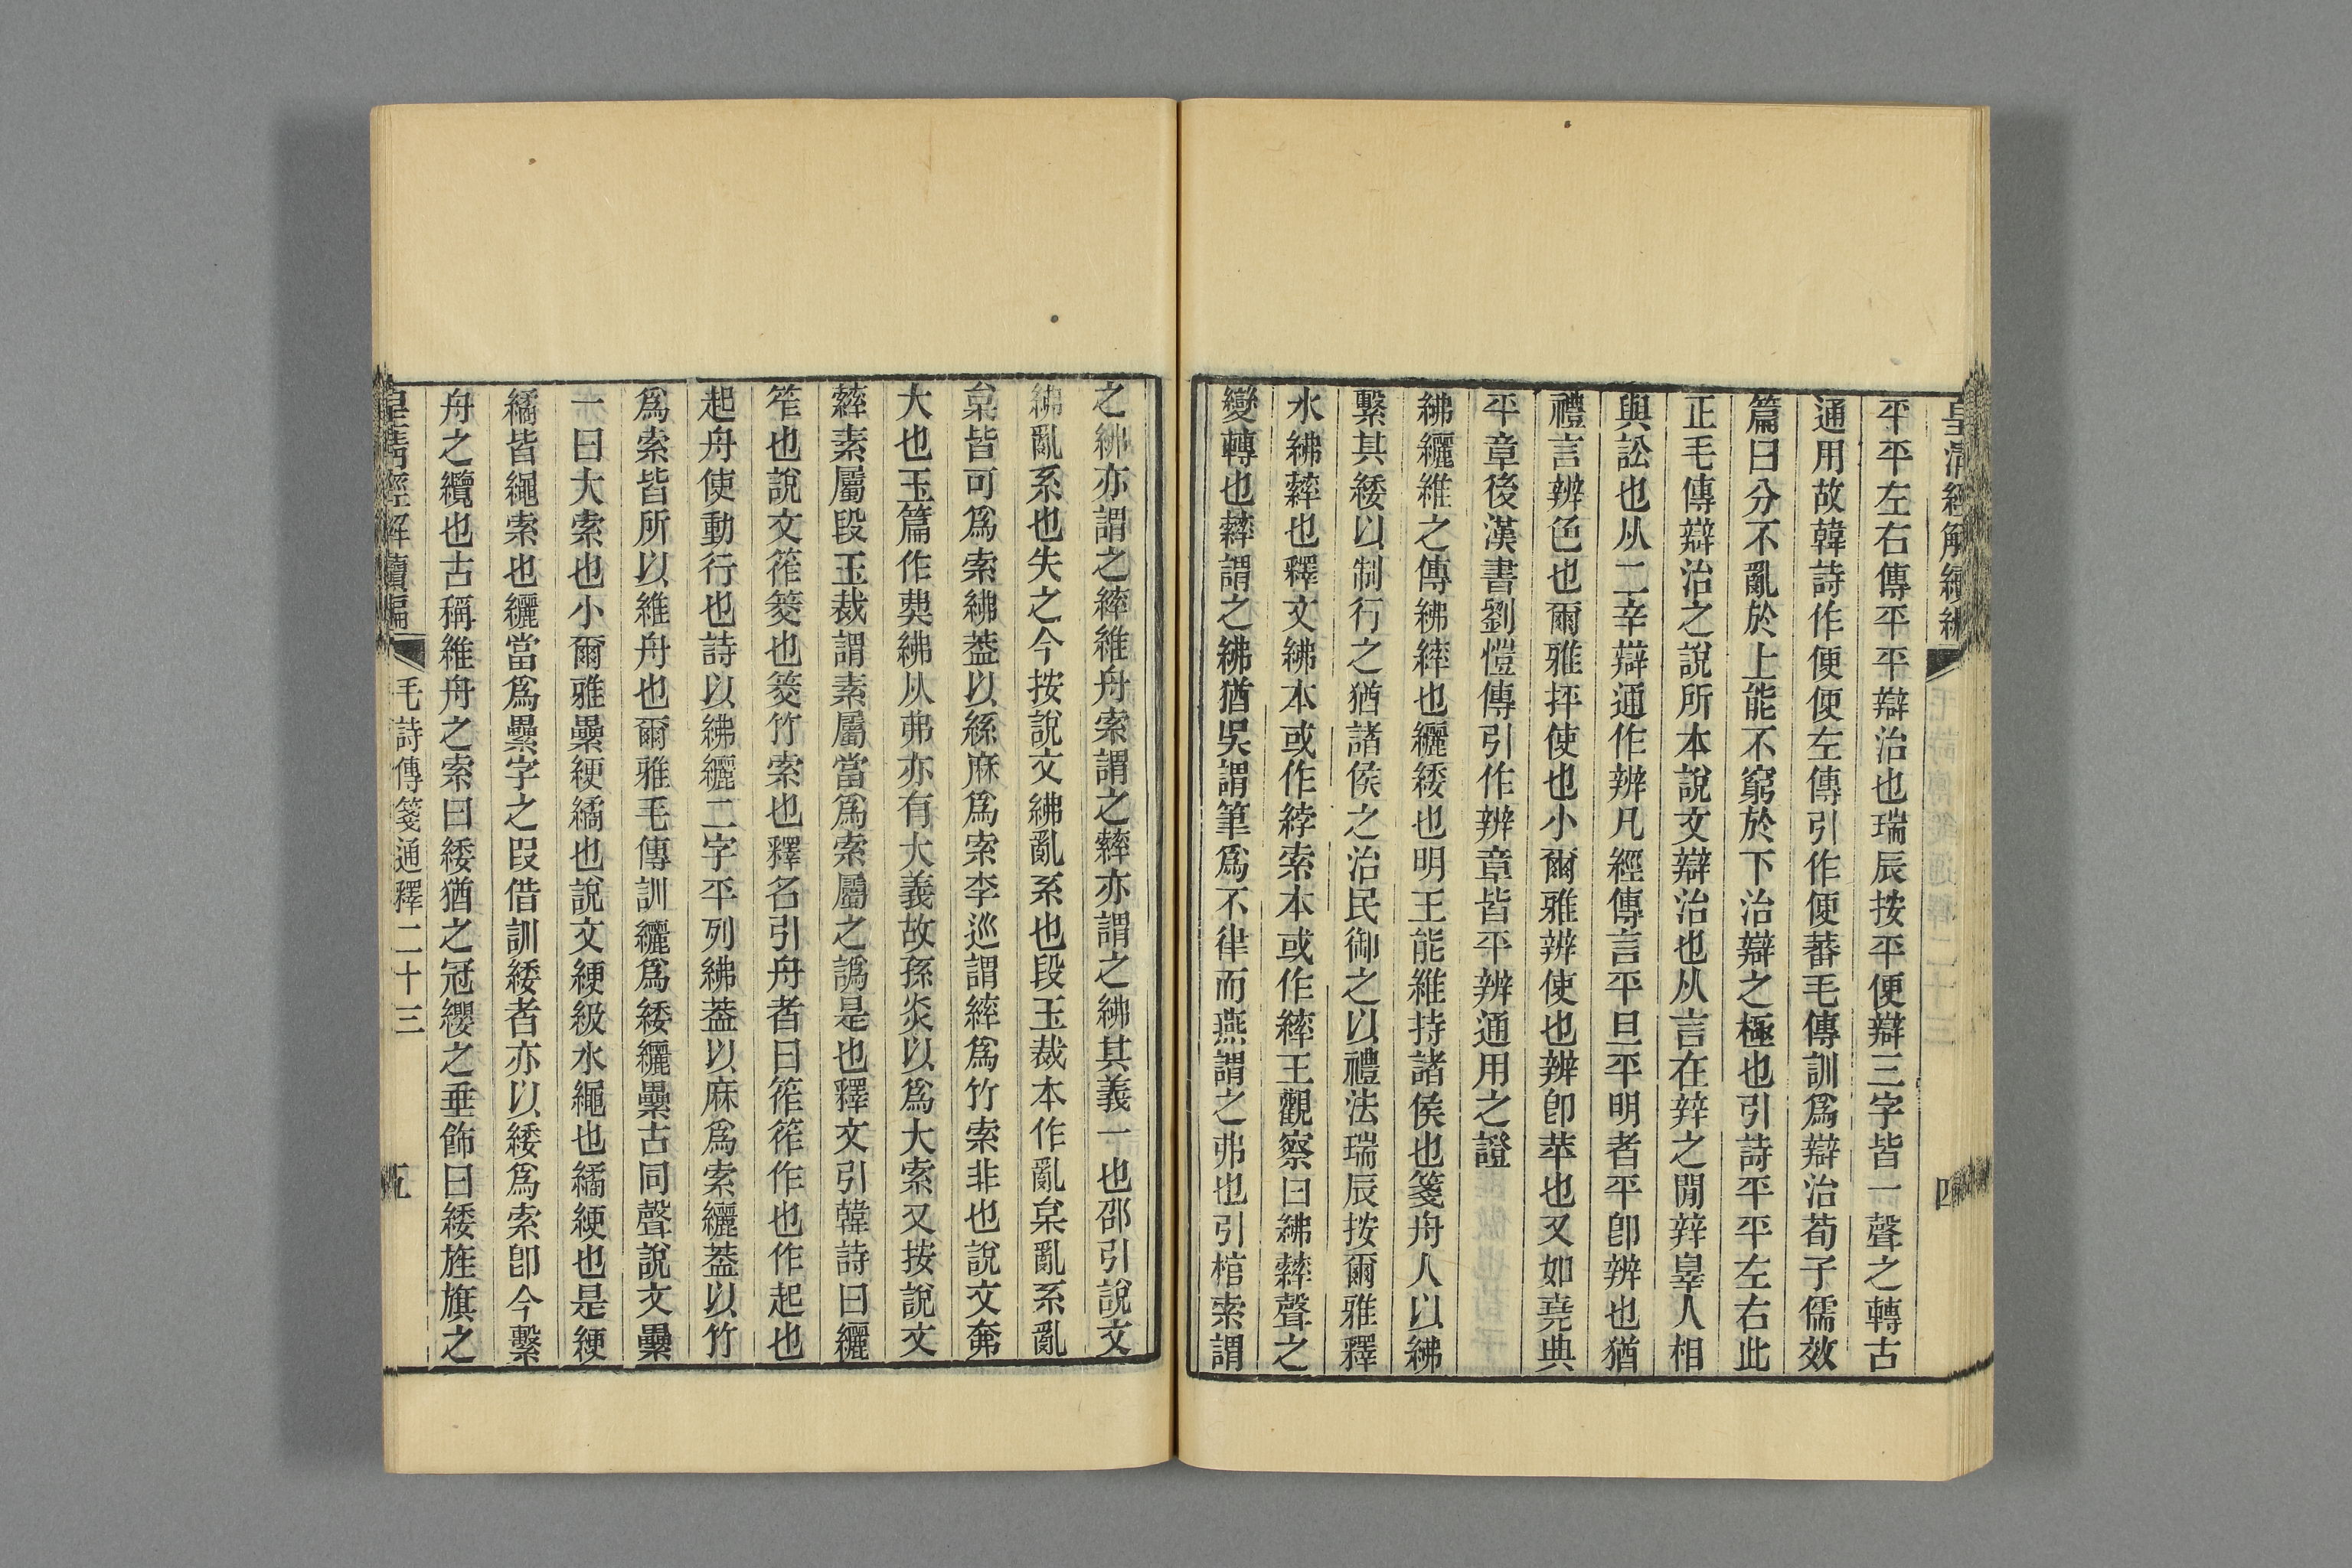 皇清經解續編
四
平平左右傳平平辯治也瑞辰按平便辯三字皆一聲之轉古
通用故韓詩作便便左傳引作便蕃毛傳訓爲辯治荀子儒效
篇曰分不亂於上能不窮於下治辯之極也引詩平平左右此
正毛傳辯治之說所本說文辯治也从言在辡之閒辡辠人相
與訟也从二辛辯通作辨凡經傳言平旦平明者平卽辨也猶
禮言辨色也爾雅抨使也小爾雅辨使也辨卽苹也又如堯典
平章後漢書劉愷傳引作辨章皆平辨通用之證
紼纚維之傳紼繂也纚緌也明王能維持諸侯也箋舟人以紼
繫其緌以制行之猶諸侯之治民御之以禮法瑞辰按爾雅釋
水紼䋎也釋文紼本或作綍索本或作繂王觀察曰紼䋎聲之
變轉也䋎謂之紼猶吳謂筆爲不律而燕謂之弗也引棺索謂
之紼亦謂之繂維舟索謂之䋎亦謂之紼其義一也邵引說文
紼亂系也失之今按說文紼亂系也段玉裁本作亂枲亂系亂
枲皆可爲索紼葢以絲麻爲索李巡謂繂爲竹索非也說文奟
大也玉篇作㢼紼从弗亦有大義故孫炎以爲大索又按說文
䋎素屬段玉裁謂素屬當爲索屬之譌是也釋文引韓詩曰纚
筰也說文筰筊也筊竹索也釋名引舟者曰筰筰作也作起也
起舟使動行也詩以紼纚二字平列紼葢以麻爲索纚葢以竹
爲索皆所以維舟也爾雅毛傳訓纚爲緌纚纍古同聲說文纍
一曰大索也小爾雅纍綆繘也說文綆級水繩也繘綆也是綆
繘皆繩索也纚當爲纍字之叚借訓緌者亦以緌爲索卽今繫
舟之纜也古稱維舟之索曰緌猶之冠纓之垂飾曰緌旌旗之
皇清經解續編
毛詩傳箋通釋二十三
五